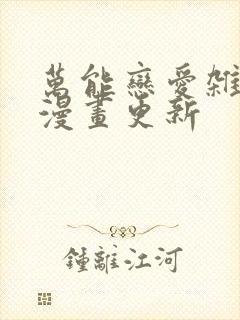 萬能戀愛雜
漫畫更新
鍾離江河